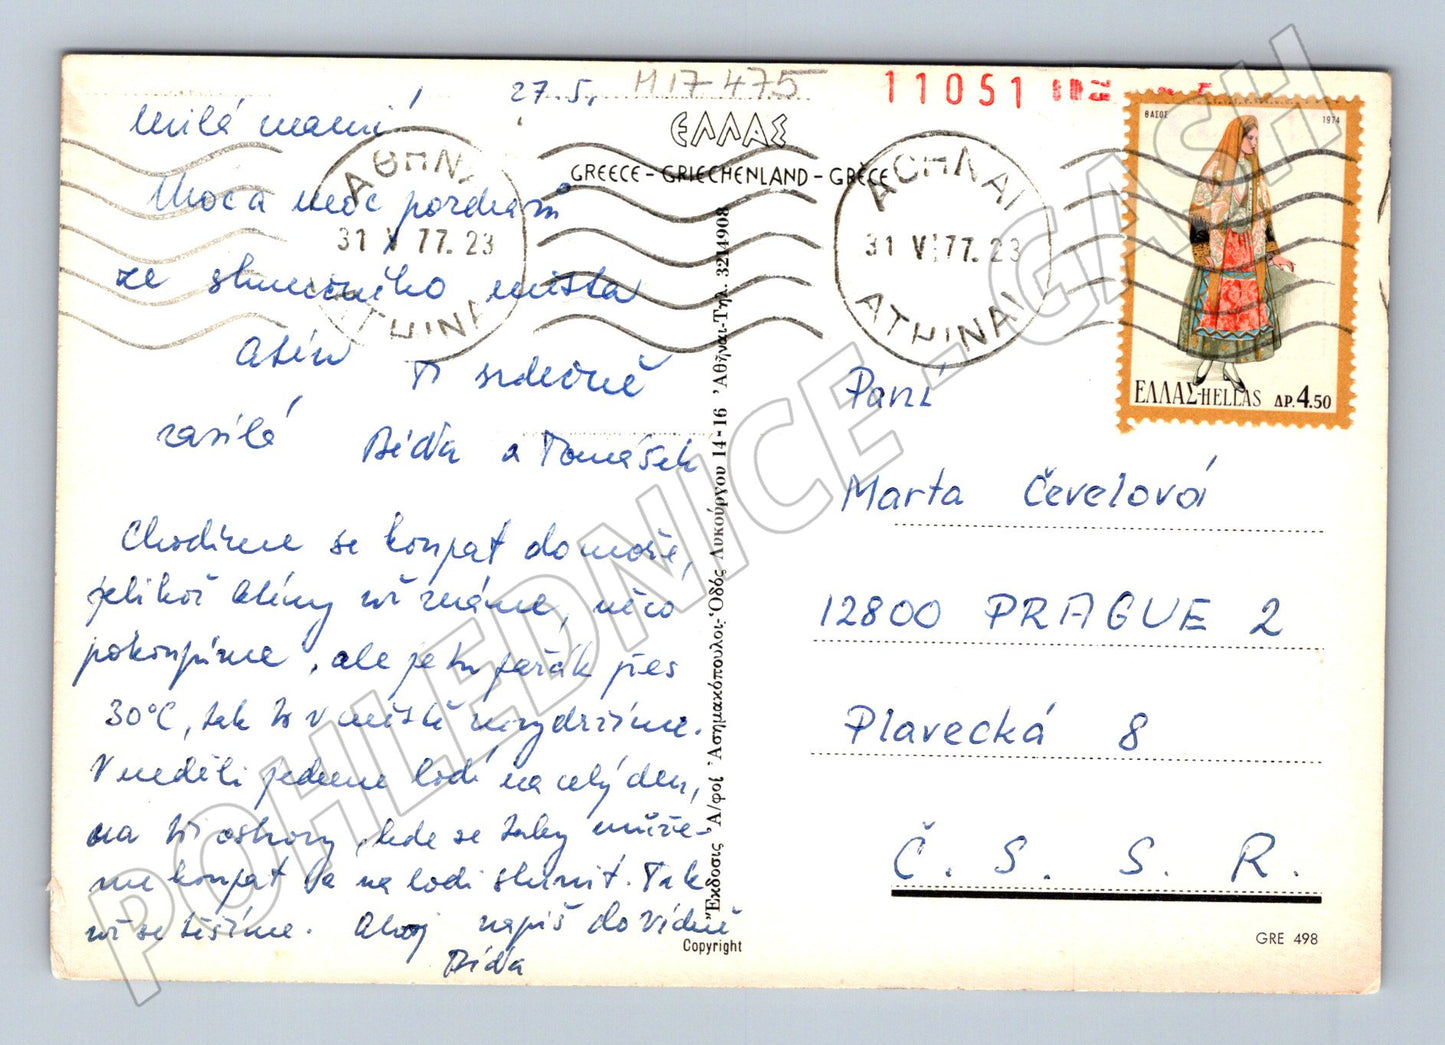 27.5.
H17 475
11051
Milá mami!
Moc a moc pozdravů
ze slunečního města
Atén Ti srdečně
zasílá Bíďa a Tomášek
Chodíme se koupat do moře,
jelikož Atény už známe, něco
pokoupíme, ale je tu parák přes
30°C, tak to v městě nevydržíme.
V neděli jedeme lodí na celý den,
na tři ostrovy, kde se taky může-
me koupat a na lodi slunit. Tak
už se těšíme. Ahoj napiš do Vídně
Bíďa
ΕΛΛΑΣ
GREECE - GRIECHENLAND - GRÈCE
ΑΘΗΝΑΙ
31 V 77. 23
ATHINAI
ΑΘΗΝΑΙ
31 V 77. 23
ATHINAI
ΘΑΣΟΣ
1974
ΕΛΛΑΣ-HELLAS ΔΡ. 4.50
Ἔκδοσις Ἀ/φοὶ Ἀσημακόπουλοι-Ὁδὸς Λυκούργου 14-16 Ἀθῆναι-Τηλ. 3214908
Copyright
Paní
Marta Čevelová
12800 PRAGUE 2
Plavecká 8
Č. S. S. R.
GRE 498
POHLEDNICE - GASH